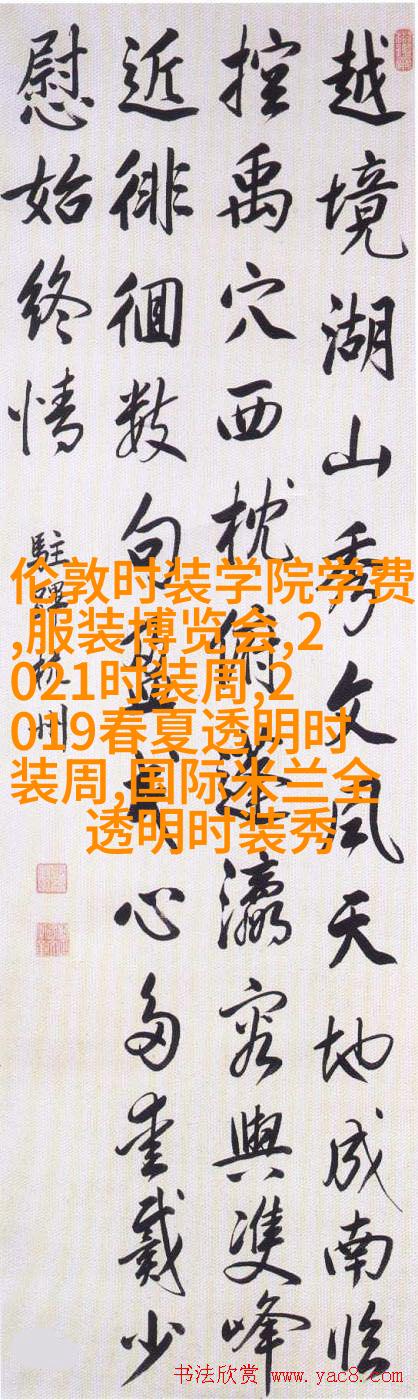 越境湖山秀文風天地成南臨
控禹穴西枕俯蓬瀛容與雙峰
近徘徊數句盈我心多愛戴少
慰始終情
駐蹕杭州
伦敦时装学院学费
,服装博览会,2
021时装周,2
019春夏透明时
装周,国际米兰全
透明时装秀
书法欣赏 www.yac8.com